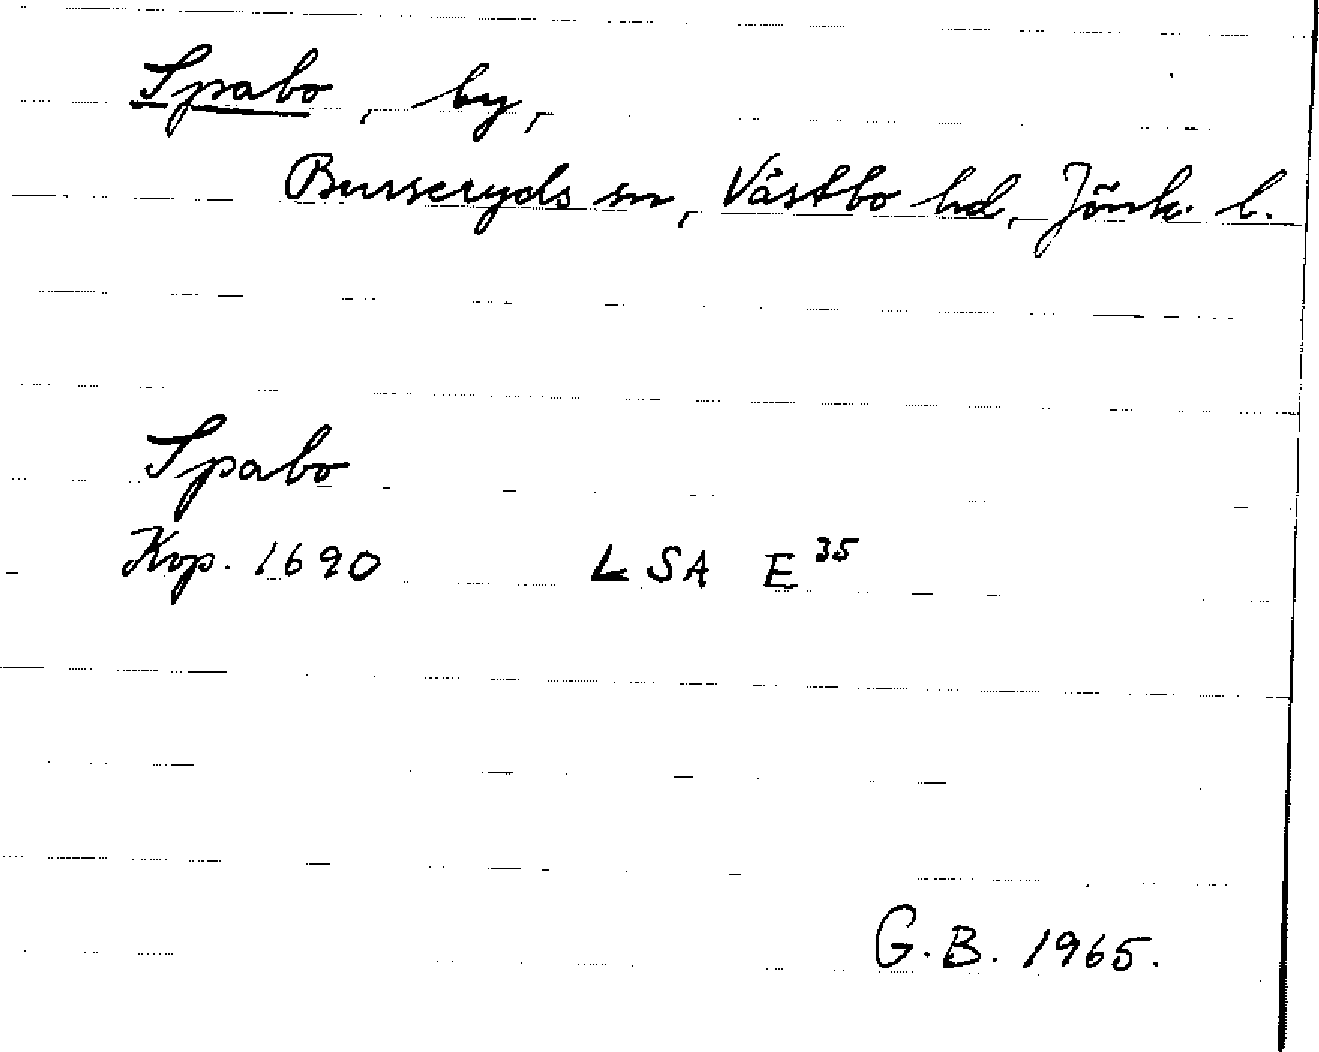 Spabo, by,
Burseryds sn, Västbo hd, Jönk. l.
Spabo
Kop. 1690 LSA E³⁵
G.B. 1965.